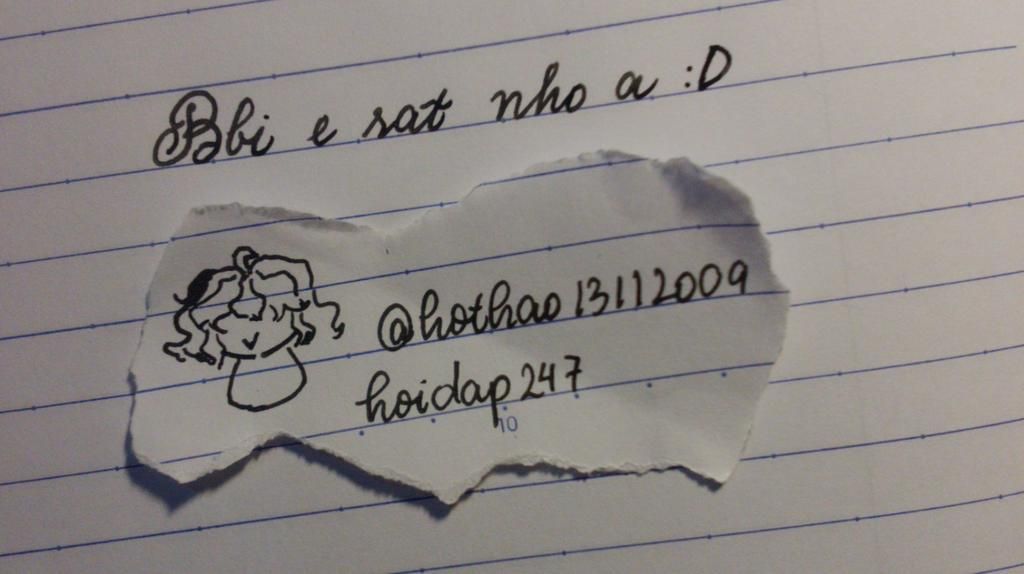 Bbi e rat nho a :D
@hothao13112009
hoidap247
10